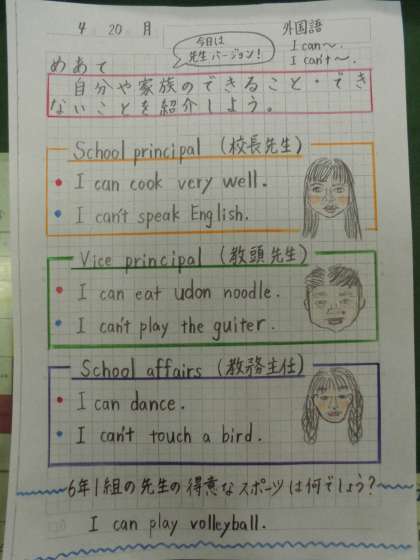 4 20 月
外国語
今日は
先生バージョン!
I can〜.
I can't〜.
めあて
自分や家族のできること・でき
ないことを紹介しよう。
School principal (校長先生)
I can cook very well.
I can't speak English.
Vice principal (教頭先生)
I can eat udon noodle.
I can't play the guiter.
School affairs (教務主任)
I can dance.
I can't touch a bird.
6年1組の先生の得意なスポーツは何でしょう?
I can play volleyball.